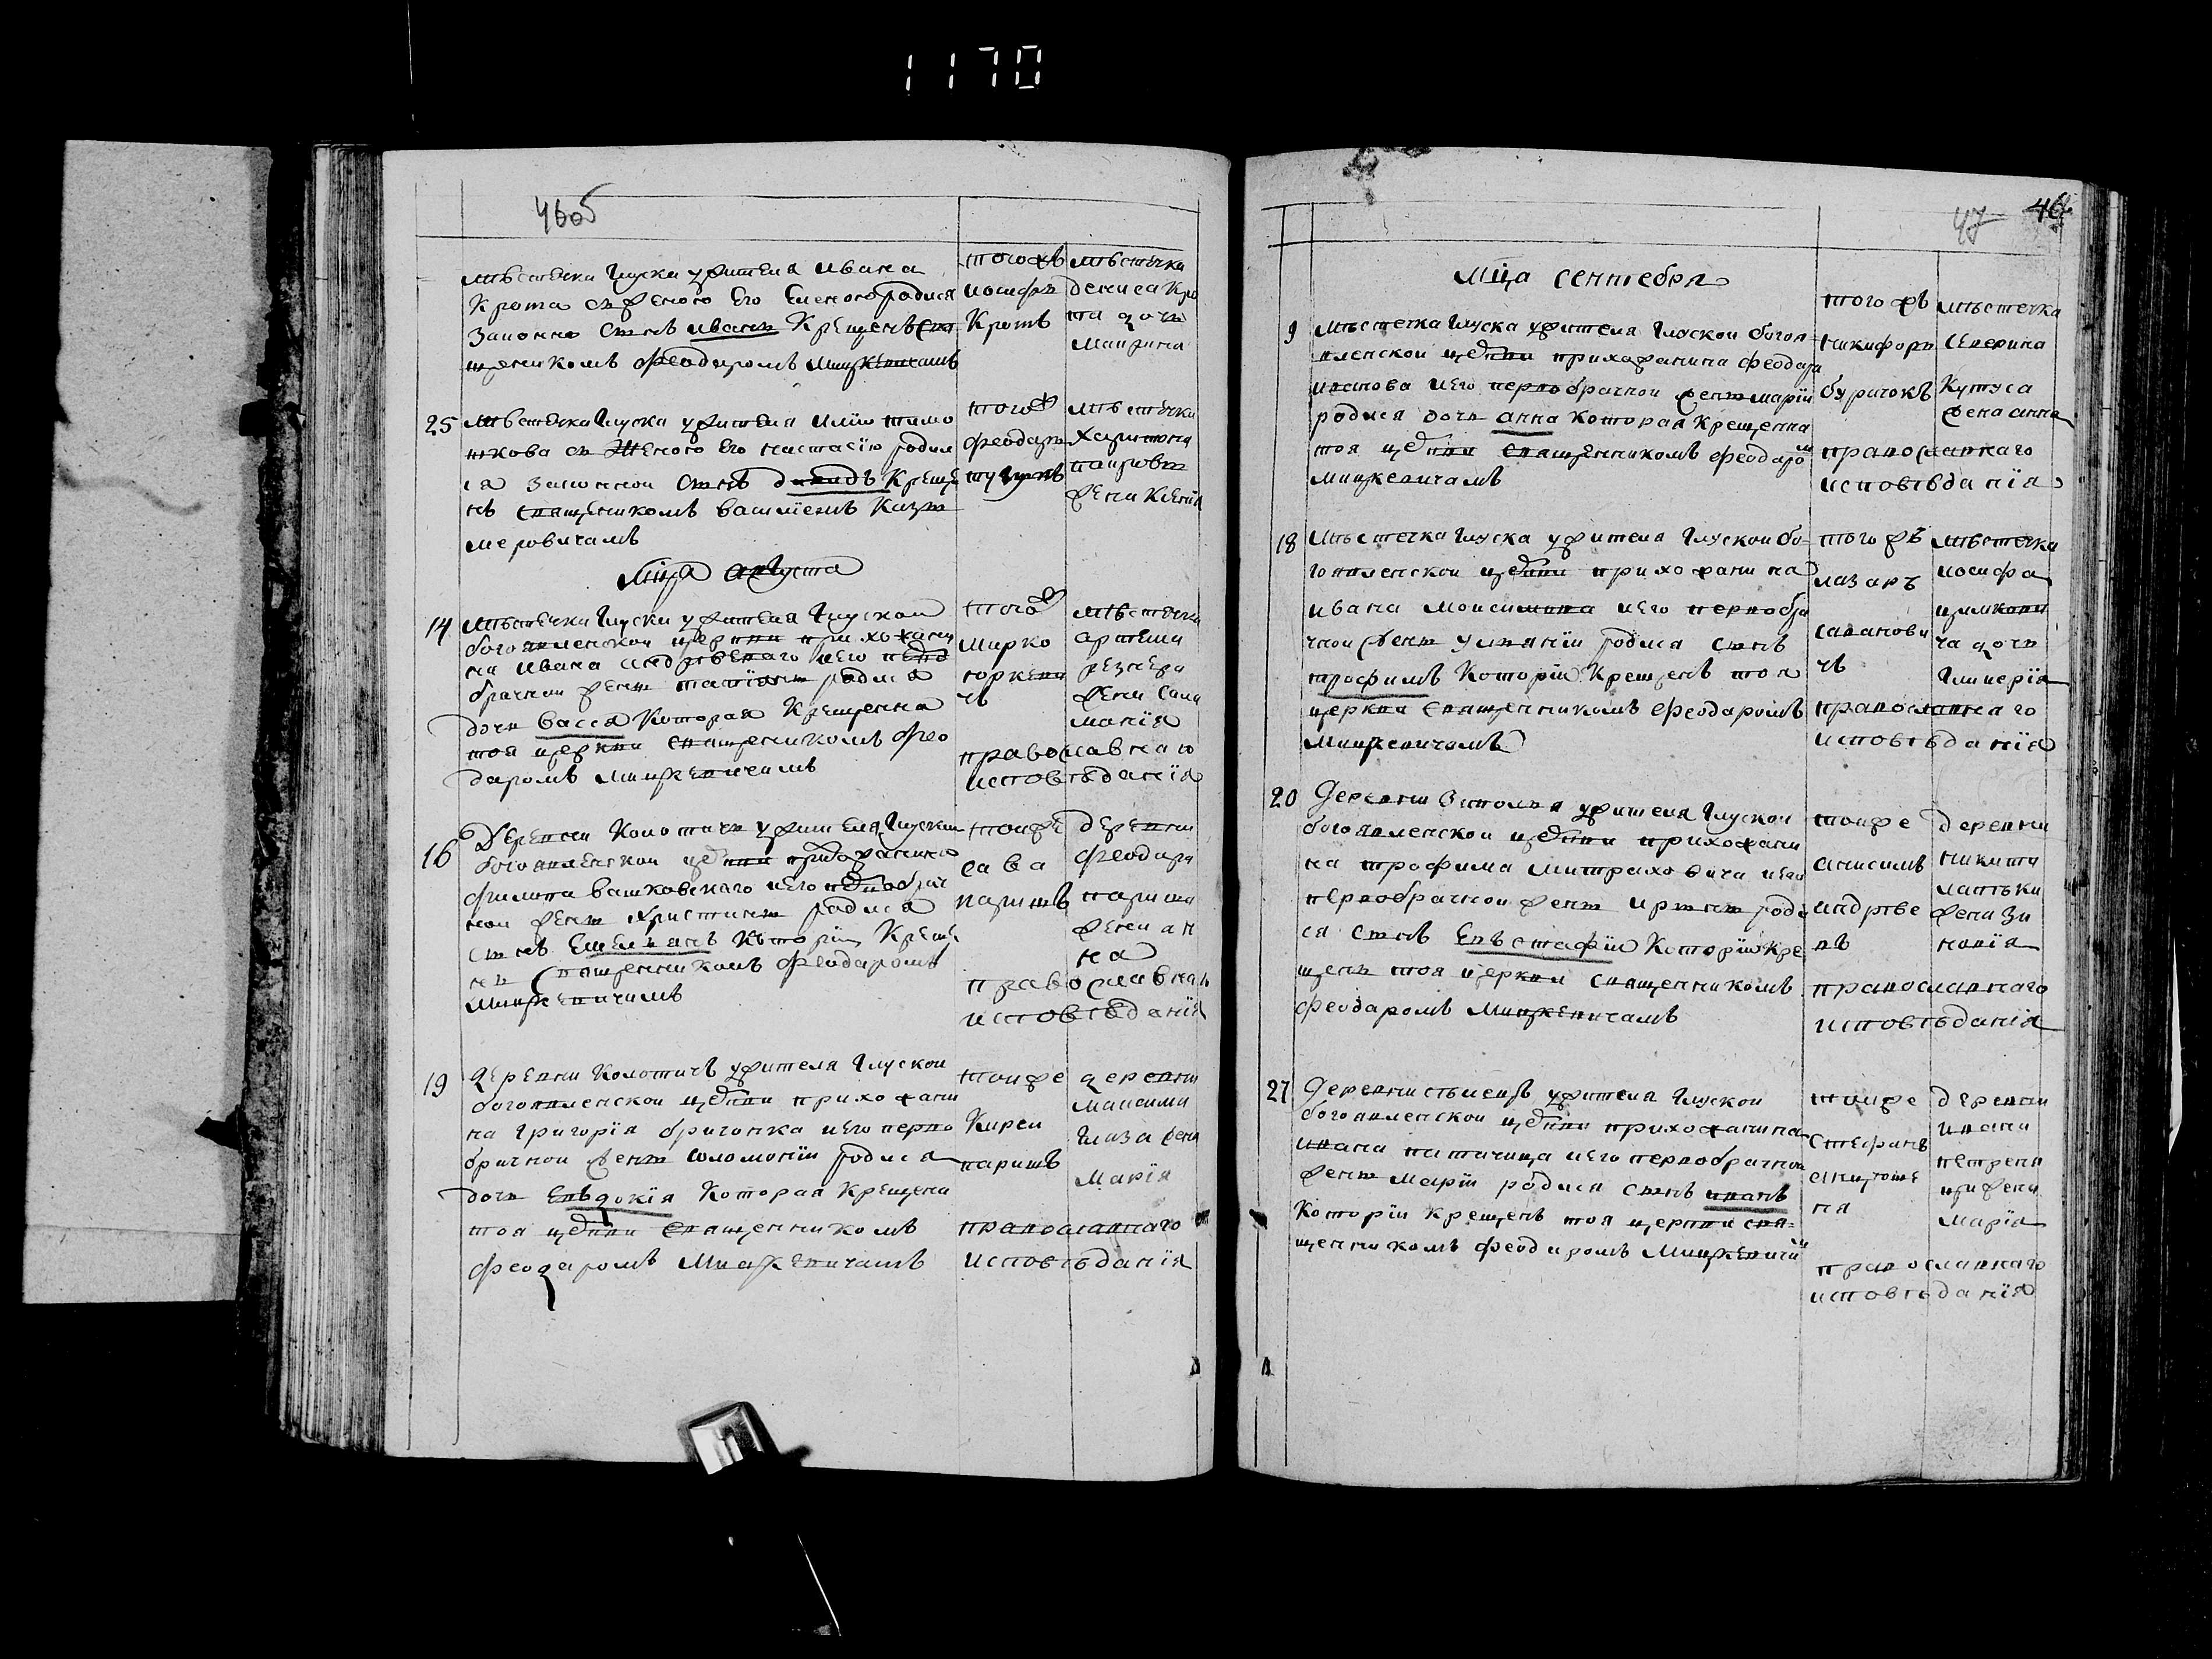 1170
46об
мѣстечка Глуска ужителя Ивана
Крота съ женою его Еленою родися
законно сынъ Иванъ крещенъ свя
щеникомъ Феодоромъ Мицкевичамъ
того жъ
иосифъ
Кротъ
мѣстечка
дениса Кро
та дочь
Марина
25
мѣстечка Глуска ужителя
съ женою его настасію родил
ся законной сынъ давидъ крещѣ
нъ священикомъ василіемъ Кази
меровичамъ
того ж
феодоръ
мѣстечка
Харитона
жена Ксенія
Мца августа
14
мѣстечка Глуска ужителя Глуской
богоявленской церкви прихожани
на Ивана его перво
брачной жены татіяны родися
дочь Васса которая крещенна
тоя церкви священикомъ Фео
даромъ Мицкевичамъ
того ж
Мирко
юркеви
чъ
мѣстечка
артема
резнера
жена Сала
манія
православнаго
исповѣданія
16
Деревни Колотичъ ужителя Глуской
богоявленской церкви прихожанина
Филипа Вашковскаго его первобрач
ной жены христины родися
сынъ Емельянъ который креще
нъ священникомъ Феодаромъ
Мицкевичамъ
тоиже
сава
паршъ
деревни
феодора
парша
жена ан
на
православнаго
исповѣданія
19
Деревни Колотичъ ужителя Глуской
богоявленской церкви прихожани
на Григорія бричонка его перво
брачной жены соломоніи родися
дочь Евдокія которая крещена
тоя церкви священникомъ
Феодаромъ Мицкевичамъ
тоиже
Кирей
паршъ
деревни
Максима
Глаза жена
Марія
православнаго
исповѣданія
47 46
Мца сентебря
9
Мѣстечка Глуска ужителя Глуской богоя
вленской церкви прихожанина Феодара
его первобрачной жены маріи
родися дочь анна которая крещенна
тоя церкви священникомъ Феодаром
Мицкевичамъ
того жъ
никифоръ
бурачокъ
мѣстечка
Северина
Кутуса
жена анна
православнаго
исповѣданія
18
Мѣстечка Глуска ужителя Глуской бо-
гоявленской церкви прихожанина
ивана его первобра
чной жены ульяніи родися сынъ
трофимъ который крещенъ тоя
церкви священникомъ Феодаромъ
Мицкевичамъ
того жъ
лазаръ
саванови
чъ
мѣстечка
иосифа
ча дочь
Гликерія
православнаго
исповѣданія
20
Деревни Заполья ужителя Глуской
богоявленской церкви прихожани
на трофима Митраховича его
первобрачной жены ирыны роди
ся сынъ Евъстафій который кре
щенъ тоя церкви священникомъ
Феодаромъ Мицкевичамъ
тоиже
анисимъ
андрѣе
въ
деревни
никиты
жена Зи
новія
православнаго
исповѣданія
27
Деревни ужителя Глуской
богоявленской церкви прихожанина
ивана его первобрачной
жены маріи родися сынъ иванъ
который крещенъ тоя церкви свя-
щенникомъ Феодаромъ Мицкевичам
тоиже
Стефанъ
деревни
ивана
жена
Марія
православнаго
исповѣданія